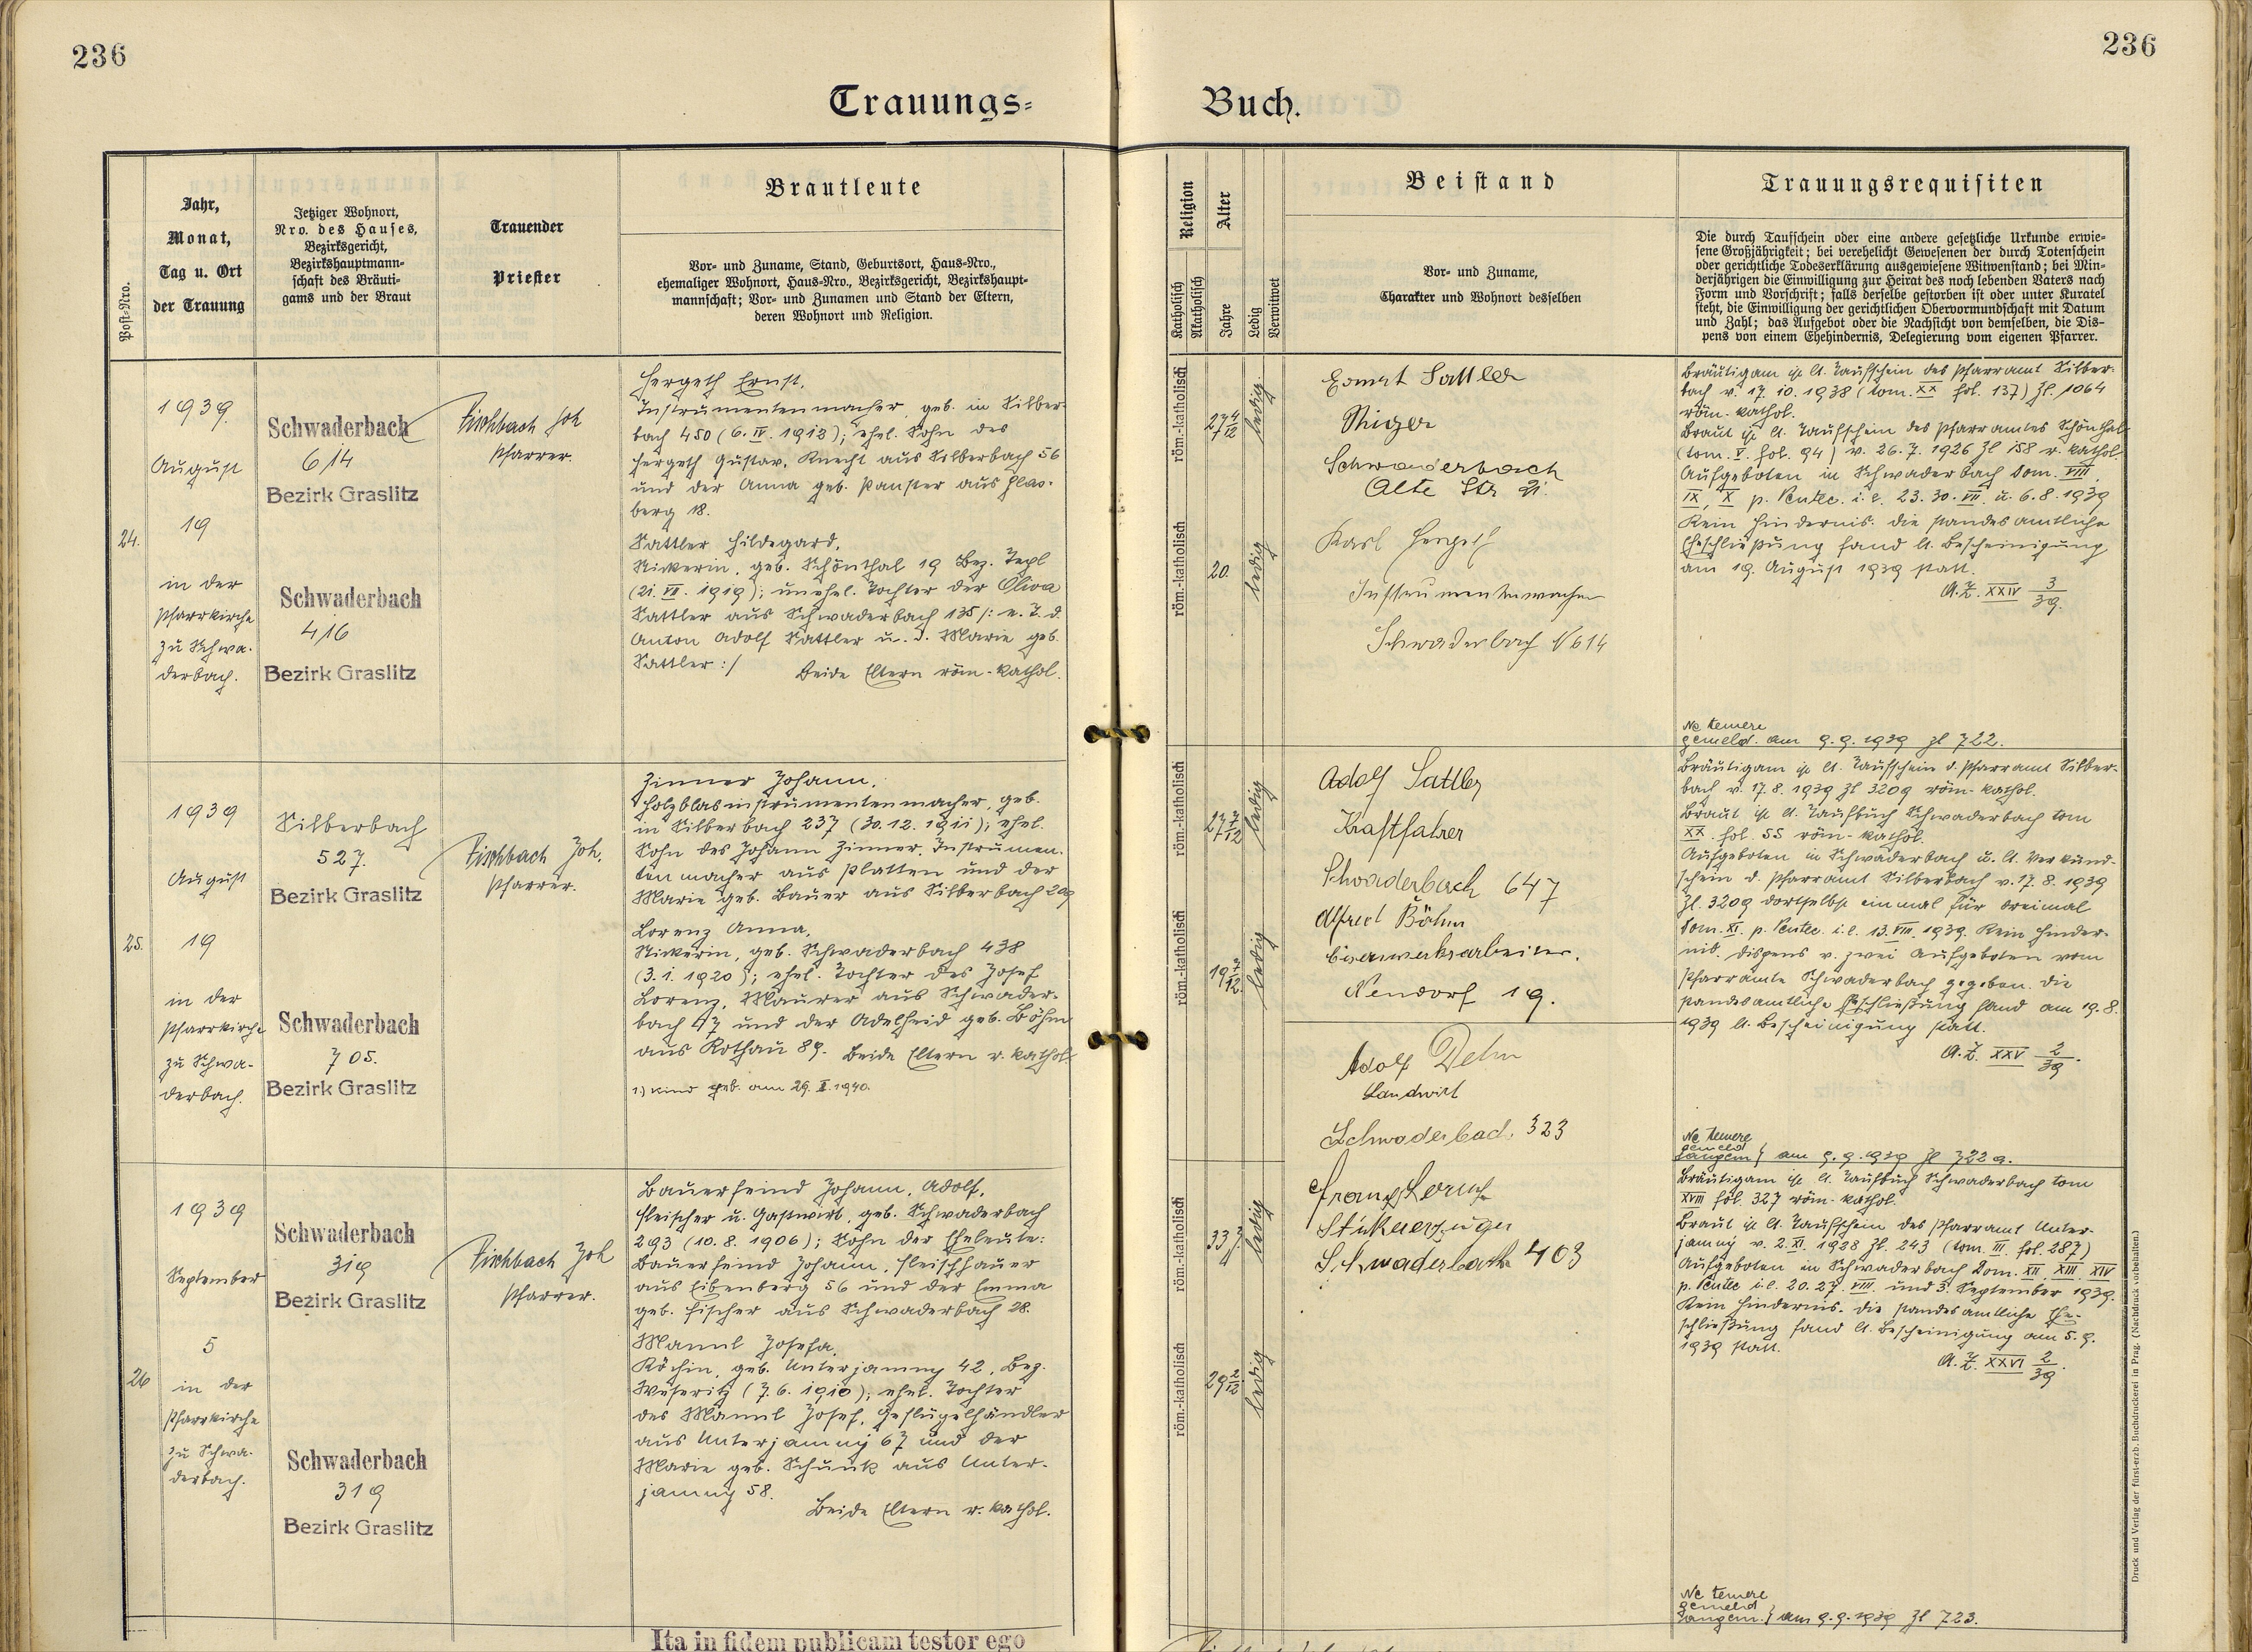 236
236
Trauungs-
Buch.
Post-Nro.
Jahr,
Monat,
Tag u. Ort
der Trauung
Jetziger Wohnort,
Nro. des Hauses,
Bezirksgericht,
Bezirkshauptmann-
schaft des Bräuti-
gams und der Braut
Trauender
Priester
Brautleute
Vor- und Zuname, Stand, Geburtsort, Haus-Nro.,
ehemaliger Wohnort, Haus-Nro., Bezirksgericht, Bezirkshaupt-
mannschaft; Vor- und Zunamen und Stand der Eltern,
deren Wohnort und Religion.
Religion
Katholisch
Akatholisch
Alter
Jahre
Ledig
Verwitwet
Beistand
Vor- und Zuname,
Charakter und Wohnort desselben
Trauungsrequisiten
Die durch Taufschein oder eine andere gesetzliche Urkunde erwie-
sene Großjährigkeit; bei verehelicht Gewesenen der durch Totenschein
oder gerichtliche Todeserklärung ausgewiesene Witwenstand; bei Min-
derjährigen die Einwilligung zur Heirat des noch lebenden Vaters nach
Form und Vorschrift; falls derselbe gestorben ist oder unter Kuratel
steht, die Einwilligung der gerichtlichen Obervormundschaft mit Datum
und Zahl; das Aufgebot oder die Nachsicht von demselben, die Dis-
pens von einem Ehehindernis, Delegierung vom eigenen Pfarrer.
24.
1939.
August
19
in der
Pfarrkirche
zu Schwa-
derbach.
Schwaderbach
614
Bezirk Graslitz
Schwaderbach
416
Bezirk Graslitz
Fischbach Joh
Pfarrer.
Hergeth Ernst,
Instrumentenmacher, geb. in Silber-
bach 450 (6. IV. 1912); ehel. Sohn des
Hergeth Gustav, Knecht aus Silberbach 56
und der Anna geb. Panster aus Glas-
berg 18.
Sattler Hildegard,
Stickerin, geb. Schönthal 19 Bez. Tepl
(21. VII. 1919); unehel. Tochter der Oliva
Sattler aus Schwaderbach 135 /: e. T. d.
Anton Adolf Sattler u. d. Marie geb.
Sattler :/ Beide Eltern röm-kathol.
röm.-katholisch
27 4/12
ledig
röm.-katholisch
20.
ledig
Ernst Sattler
Schwaderbach
Alte Str 21.
Karl Hergeth
Instrumentenmacher
Schwaderbach N 614
Bräutigam ist lt. Taufschein des Pfarramt Silber-
bach v. 17. 10. 1938 (tom. XX fol. 137) Zl. 1064
röm-kathol.
Braut ist lt. Taufschein des Pfarramtes Schönthal
(tom. V. fol. 94) v. 26. 7. 1926 Zl 158 r. kathol.
Aufgeboten in Schwaderbach Dom. VIII,
IX, X p. Pentec. i. e. 23. 30. VII. u. 6. 8. 1939
Kein Hindernis. Die standesamtliche
Eheschließung fand lt. Bescheinigung
am 19. August 1939 statt.
A.Z. XXIV 3/39.
Ne temere
gemeld. am 9. 9. 1939 Zl 722.
25.
1939
August
19
in der
Pfarrkirche
zu Schwa-
derbach.
Silberbach
527.
Bezirk Graslitz
Schwaderbach
705.
Bezirk Graslitz
Fischbach Joh.
Pfarrer.
Zinner Johann,
Holzblasinstrumentenmacher, geb.
in Silberbach 237 (30. 12. 1911); ehel.
Sohn des Johann Zinner, Instrumen-
tenmacher aus Platten und der
Marie geb. Bauer aus Silberbach 209
Lorenz Anna,
Stickerin, geb. Schwaderbach 438
(3. 1. 1920); ehel. Tochter des Josef
Lorenz, Maurer aus Schwader-
bach 47 und der Adelheid geb. Böhm
aus Rothau 89. Beide Eltern r. kathol.
1.) Kind geb. am 29. II. 1940.
röm.-katholisch
27 7/12
ledig
röm.-katholisch
19 7/12
ledig
Adolf Sattler
Kraftfahrer
Schwaderbach 647
Alfred Böhm
Eisenwerksarbeiter.
Neudorf 19.
Bräutigam ist lt. Taufschein d. Pfarramt Silber-
bach v. 17. 8. 1939 Zl 3209 röm-kathol.
Braut ist lt. Taufbuch Schwaderbach tom
XX. fol. 55 röm-kathol.
Aufgeboten in Schwaderbach u. lt. Verkünd-
schein d. Pfarramt Silberbach v. 17. 8. 1939
Zl. 3209 dortselbst einmal für dreimal
Dom. XI. p. Pentec. i. e. 13. VIII. 1939. Kein Hinder-
nis. Dispens v. zwei Aufgeboten vom
Pfarramte Schwaderbach gegeben. Die
standesamtliche Eheschließung fand am 19. 8.
1939 lt. Bescheinigung statt.
A.Z. XXV 2/39.
Ne temere
gemeld
langem } am 9. 9. 1939 Zl 722 a.
26
1939
September
5
in der
Pfarrkirche
zu Schwa-
derbach.
Schwaderbach
319
Bezirk Graslitz
Schwaderbach
319
Bezirk Graslitz
Fischbach Joh
Pfarrer.
Bauerfeind Johann, Adolf,
Fleischer u. Gastwirt, geb. Schwaderbach
293 (10. 8. 1906); Sohn der Eheleute:
Bauerfeind Johann, Fleischhauer
aus Eibenberg 56 und der Emma
geb. Fischer aus Schwaderbach 28.
Mannl Josefa,
Köchin, geb. Unterjamny 42, Bez.
Weseritz (7. 6. 1910); ehel. Tochter
des Mannl Josef, Geflügelhändler
aus Unterjamny 67 und der
Marie geb. Schunk aus Unter-
jamny 58.
Beide Eltern r. kathol.
röm.-katholisch
33 J.
ledig
röm.-katholisch
29 2/12
ledig
Adolf Dehn
Landwirt
Schwaderbach 323
Franz
Schwaderbach 403
Bräutigam ist lt. Taufbuch Schwaderbach tom
XVIII fol. 327 röm-kathol.
Braut ist lt. Taufschein des Pfarramt Unter-
jamny v. 2. XI. 1928 Zl. 243 (tom. III. fol. 287)
Aufgeboten in Schwaderbach Dom. XII, XIII, XIV
p. Pentec i. e. 20. 27. VIII. und 3. September 1939.
Kein Hindernis. Die standesamtliche Ehe-
schließung fand lt. Bescheinigung am 5. 9.
1939 statt.
A.Z. XXVI 2/39.
Ne temere
gemeld
langem. } am 9. 9. 1939 Zl 723.
Druck und Verlag der fürst-erzb. Buchdruckerei in Prag. (Nachdruck vorbehalten.)
Ita in fidem publicam testor ego